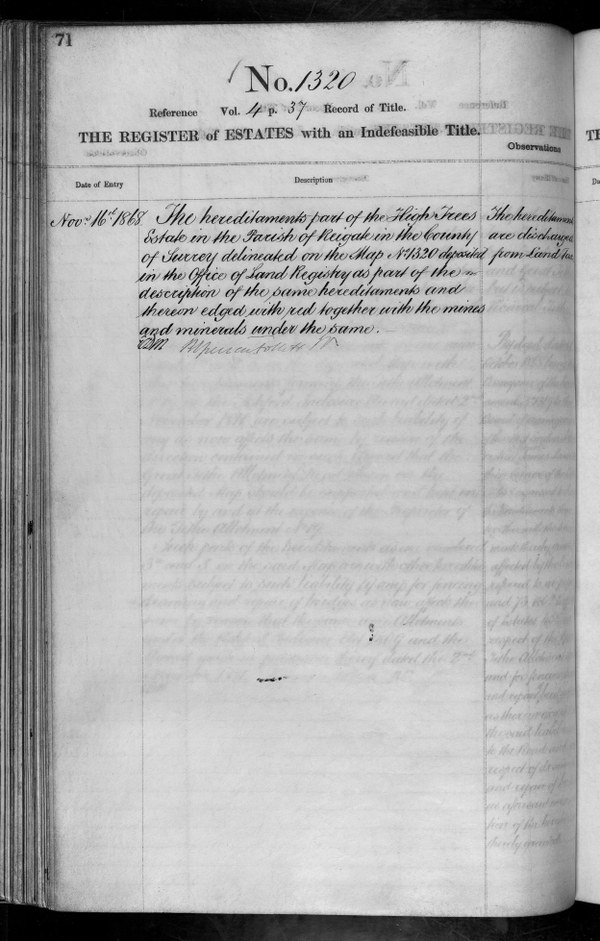 71
No. 1320
Reference Vol. 4 p. 37 Record of Title.
THE REGISTER of ESTATES with an Indefeasible Title.
Observations
Date of Entry
Description
Novr. 16th 1868
The hereditaments part of the High Trees
Estate in the Parish of Reigate in the County
of Surrey delineated on the Map No. 1320 deposited
in the Office of Land Registry as part of the
description of the same hereditaments and
thereon edged with red together with the mines
and minerals under the same.
The hereditaments
are discharged
from Land tax